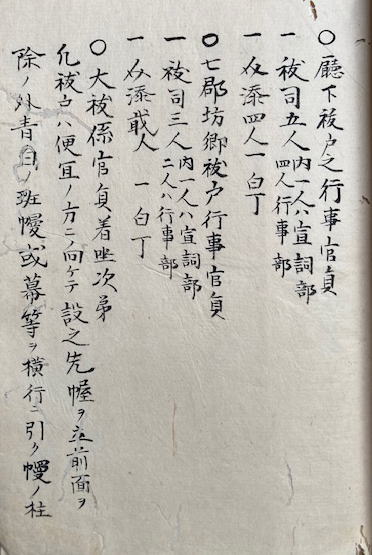 ○廳下祓戸之行事官員
一祓司五人内一人ハ宣詞部
四人行事部
一介添四人一白丁
○七郡坊郷祓戸行事官員
一祓司三人内一人ハ宣詞部
二人ハ行事部
一介添貳人 一白丁
○大祓係官員着坐次第
凡祓戸ハ便宜ノ方ニ向ケテ設之先幄ヲ立前面ヲ
除ノ外青白ノ班幔或幕等ヲ横行ニ引ク幔ノ柱